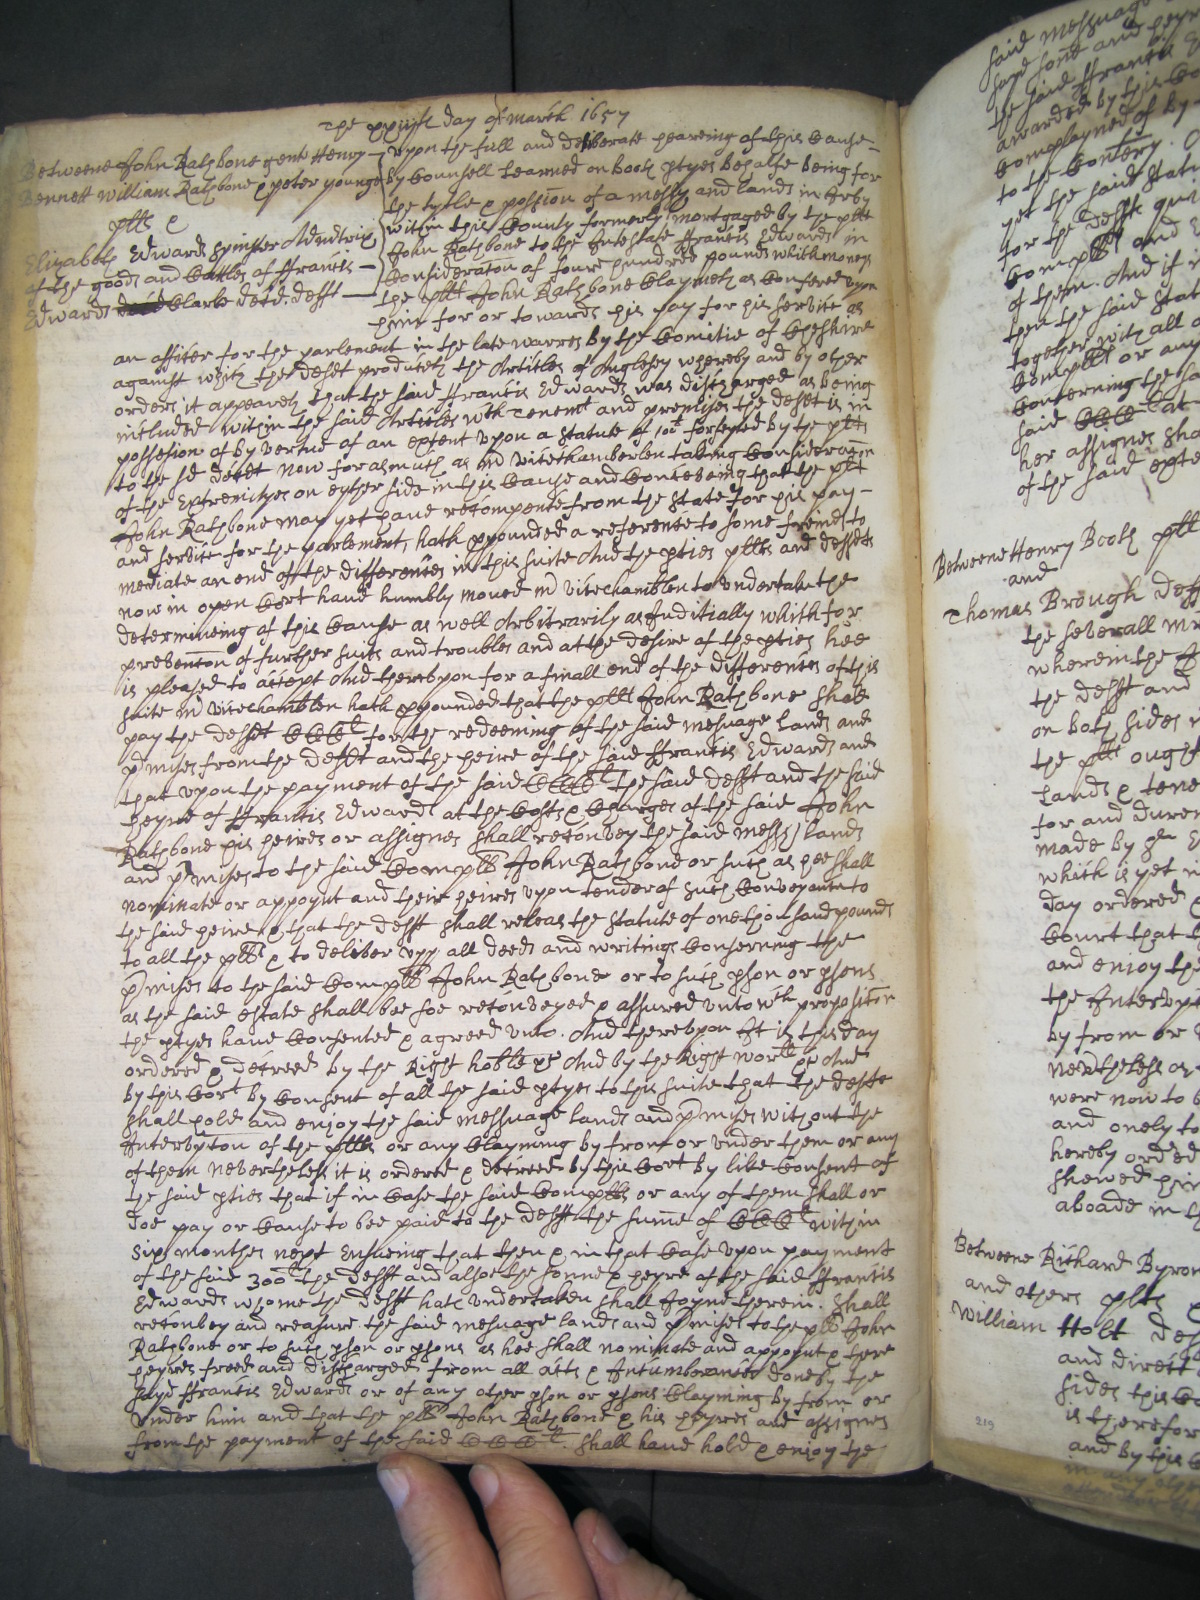 The xxiiijth day of March 1657
Betweene John Rathbone gent Henry
Bennett William Rathbone & peter younge
pltts &
Elizabeth Edwards spinster Admtrix
of the goods and Cattles of ffrancis
Edwards Clarke decd. defft
Upon the full and deliberate heareing of this Cause
by Counsell Learned on both ptyes behalfe being for
the tytle & possion of a messu and lands in Irby
within this County formerly mortgaged by the pltt
John Rathbone to the Intestate ffrancis Edwards in
Consideraton of foure hundred pounds which moneys
the pltt John Rathbone Claymeth as Confered upon
him for or towards his pay for his service as
an officer for the parlement in the late warres by the Comittie of Cheshire
against which the defft produceth the Articles of Anglesey whereby and by other
orders it appeareth that the said ffrancis Edwards was discharged as being
included within the said Articles wch Tenemt and premises the defft is in
possession of by vertue of an extent upon a Statute of forfeyted by the pltts
to the sd decd Now forasmuch as mr vicechamberlen taking Consideracon
of the Extremityes on eyther side in this Cause and Conceiveing that the pltt
John Rathbone may yet have recompence from the State for his pay
and service for the parlement, hath ppounded a reference to some freinds to
mediate an end of the differences in this suite And the pties pltts and deffts
now in open Cort have humbly moved mr vicechamblen to undertake the
determineing of this Cause as well Arbitrarily as Juditially which for
prevencon of further suits and troubles and at the desire of the pties hee
is pleased to accept And thereupon for a finall end of the differences of this
suite mr vicechamblen hath ppounded that the pltt John Rathbone shall
pay the defft CCCl for the redeeming of the said messuage lands and
pmises from the defft and the heire of the said ffrancis Edwards and
that upon the payment of the said CCCl the said defft and the said
heyre of ffrancis Edwards at the Costs & Charges of the said John
Rathbone his heires or assignes shall reconvey the said messu lands
and pmises to the said Complt John Rathbone or such as hee shall
nominate or appoynt and their heires upon tender of such Conveyance to
the said heire & that the defft shall releas the Statute of one thousand pounds
to all the pltts & to deliver upp all deeds and writings Conserning the
pmises to the said Complt John Rathbone or to such pson or psons
as the said estate shall bee soe reconveyed & assured unto wch proposicon
the ptyes have Consented & agreed unto. And thereupon It is this day
ordered & decreed by the Right hoble &c And by the Right worll &c And
by this Cort by Consent of all the said ptyes to this suite that the deffte
shall hold and enjoy the said messuage lands and pmises without the
Interupcon of the pltts or any Clayming by from or under them or any
of them Neverthelesse it is ordered & decreed by this Cort by like Consent of
the said pties that if in Case the said Complts or any of them shall or
doe pay or Cause to bee paid to the defft the sume of CCCl within
six monthes next Ensueing that then & in that Case upon payment
of the said 300l the defft and alsoe the sonne & heyre of the said ffrancis
Edwards whome the defft hath undertaken shall Joyne therein. shall
reconvey and reassure the said messuage lands and pmises to the pltt John
Rathbone or to such pson or psons as hee shall nominate and appoynt & there
heyres freed and discharged from all acts & Incumbrances done by the
sayd ffrancis Edwards or of any other pson or psons Clayming by from or
under him and that the pltt John Rathbone & his heyres and assignes
from the payment of the said CCCl. shall have hold & enjoy the
said Messuage
the said ffrancis
awarded by this
Complayned of by
to the Contery.
yet the said
for the defft
Complt and
of them. And if
then the said
together with all
Complt or any
Conserning the
said CCCl at
her assignes
of the said
Betweene Henry Booth pltt
and
Thomas Brough
the severall
wherein the
the defft and
on both sides
the pltt ought
Lands & tene
for and
made by
which is yet
day ordered
Court that
and enjoy the
the Interupt
by from or
were now to
and onely to
hereby ordered
shewed
aboade in
Betweene Richard Byrom
and others pltts
William Holt
and direct
sides this
is therefor
and by this
219